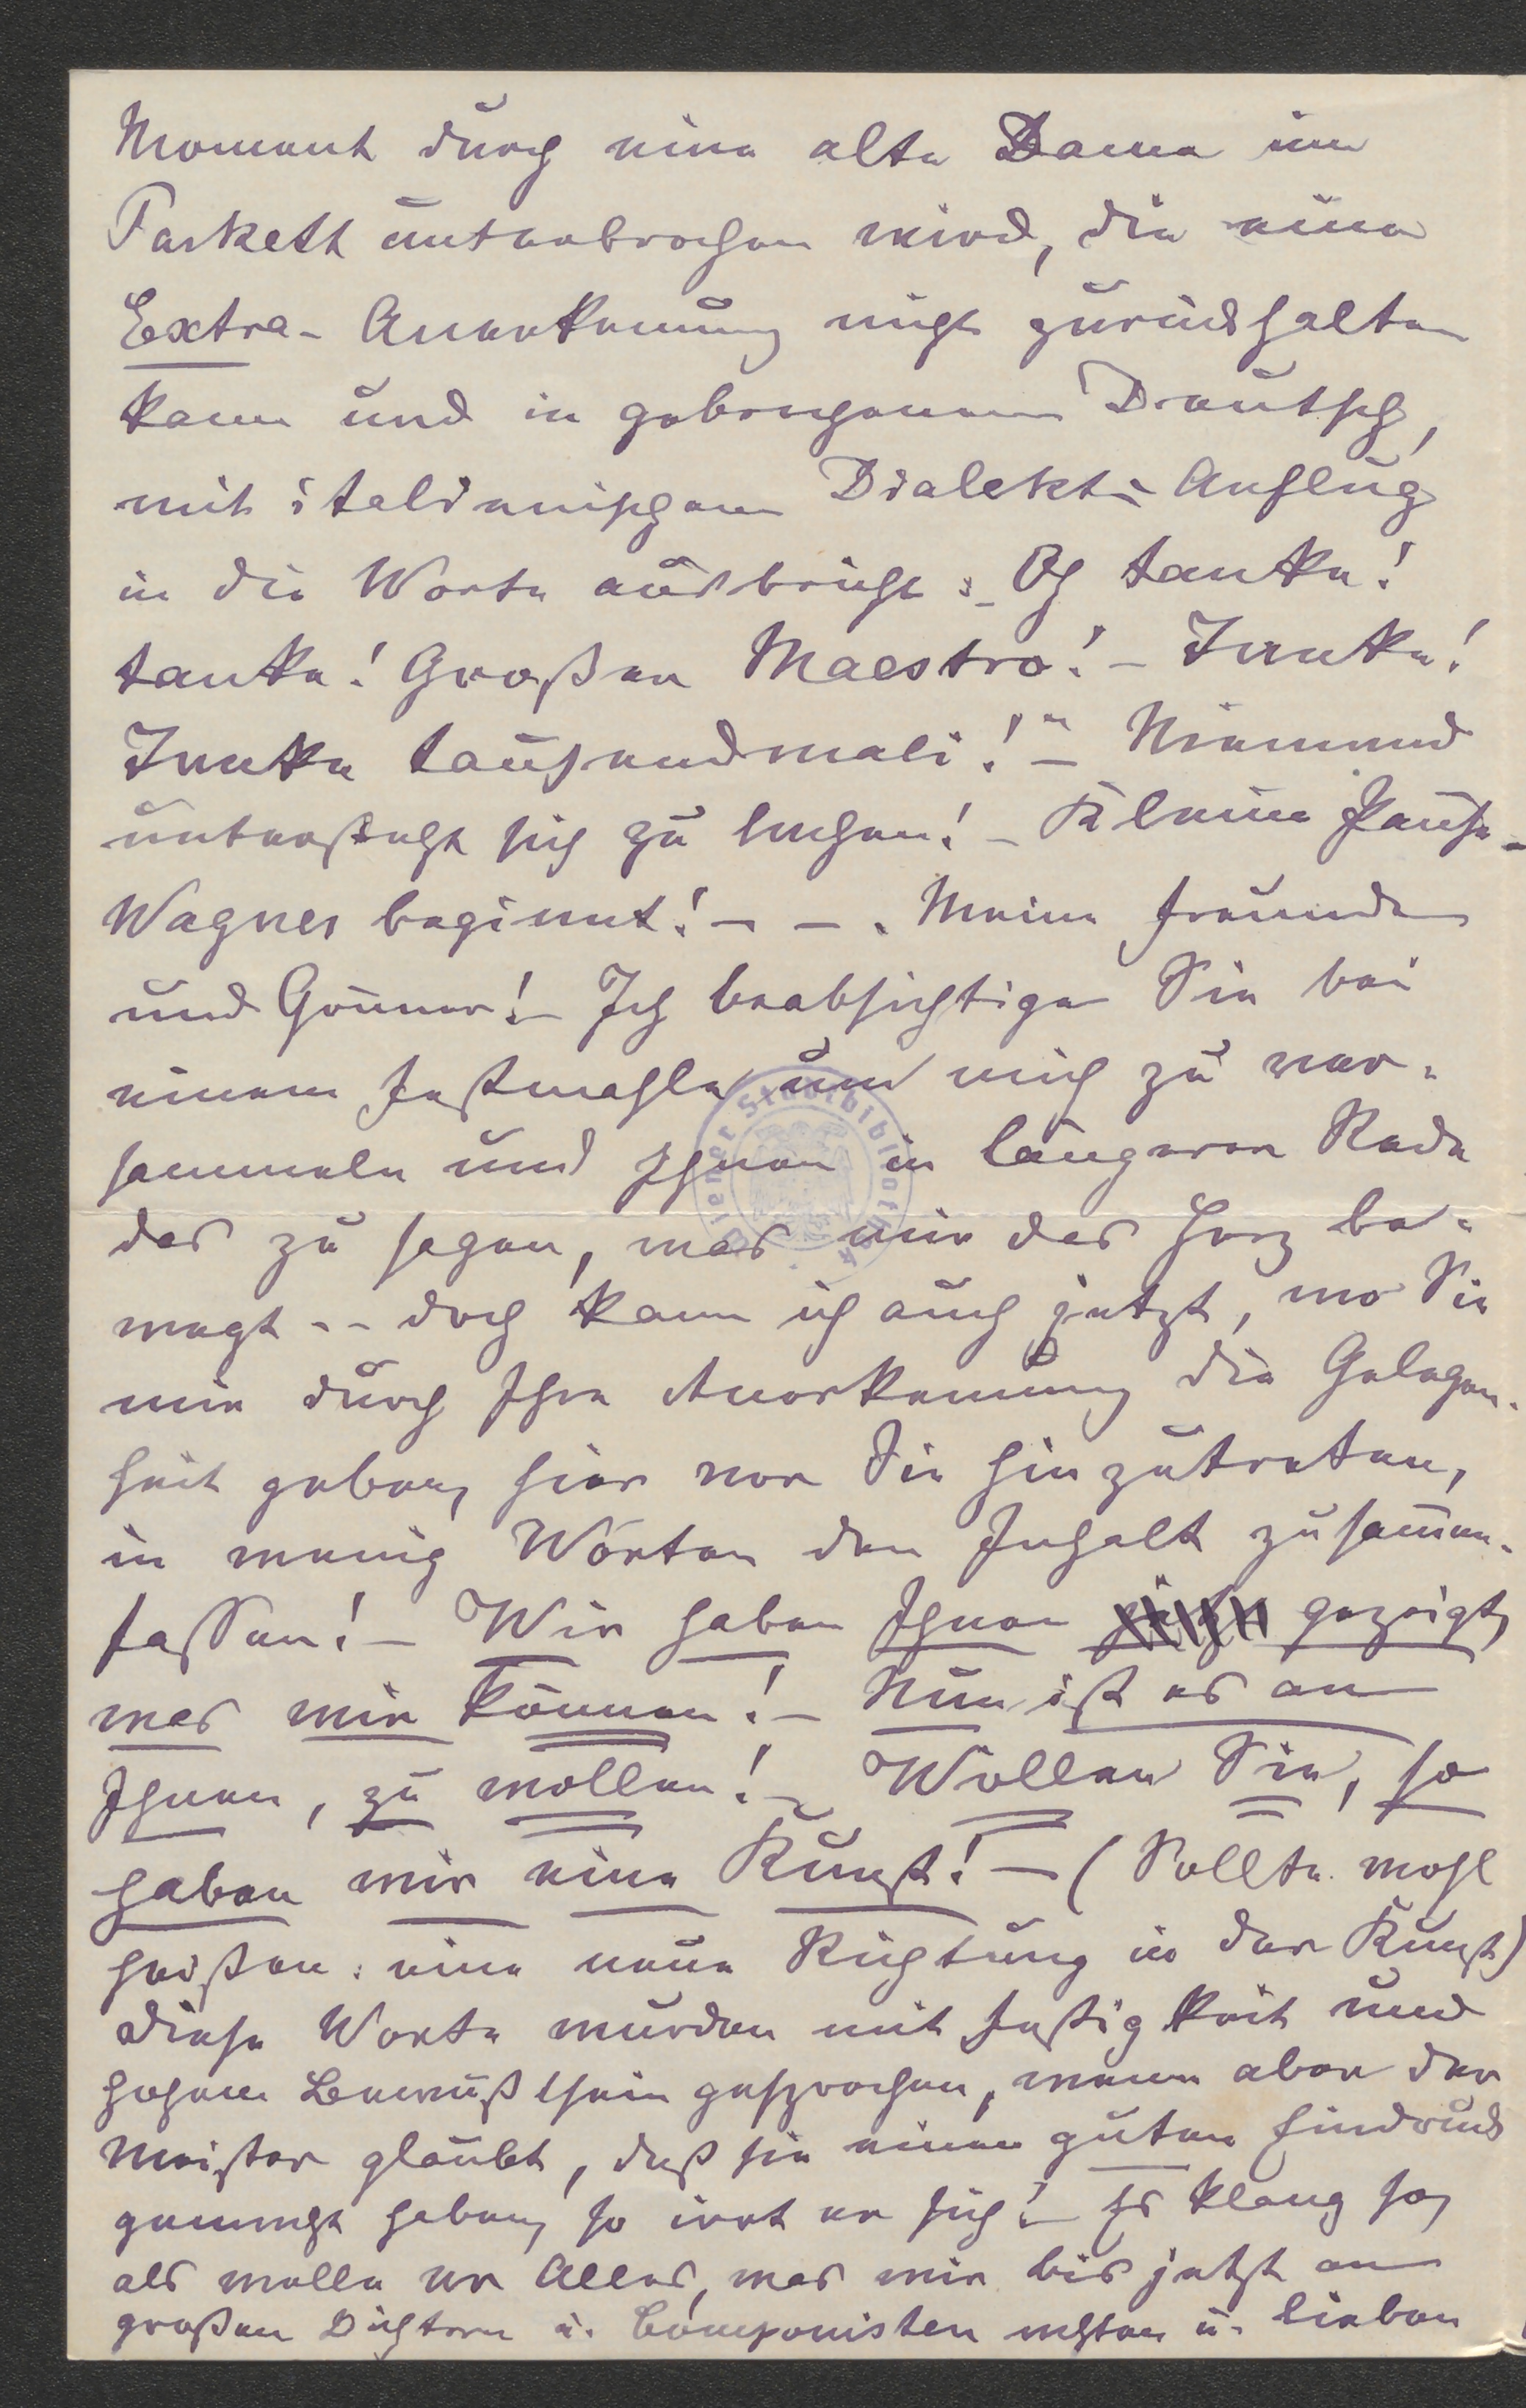 Moment durch eine alte Dame im
Parkett unterbrochen wird, die eine
Extra-Anerkennung nicht zurückhalten
kann und in gebrochenem Deutsch,
mit italienischem Dialekt-Anflug
in die Worte ausbricht: „Oh tanke!
tanke! Großen Maestro! – Tanke!
Tanke tausendmali!“ – Niemand
untersteht sich zu lachen! – Kleine Pause –
Wagner beginnt! – – „Meine Freunde
und Gönner! – Ich beabsichtige Sie bei
einem Festmahle um mich zu ver-
sammeln und Ihnen in längerer Rede
das zu sagen, was mir das Herz be-
wegt – – doch kann ich auch jetzt, wo Sie
mir durch Ihre Anerkennung die Gelegen-
heit geben, hier vor Sie hinzutreten,
in wenig Worten den Inhalt zusammen-
fassen! – Wir haben Ihnen gezeigt,
was wir können! – Nun ist es an
Ihnen, zu wollen! – Wollen Sie, so
haben wir eine Kunst! – (Sollte wohl
heißen: eine neue Richtung in der Kunst)
Diese Worte wurden mit Festigkeit und
hohem Bewußtsein gesprochen, wenn aber der
Meister glaubt, daß sie einen guten Eindruck
gemacht haben, so irrt er sich! – Es klang so,
als wolle er Alles, was wir bis jetzt an
großen Dichtern u. Componisten achten u. lieben
Wiener Stadtbibliothek